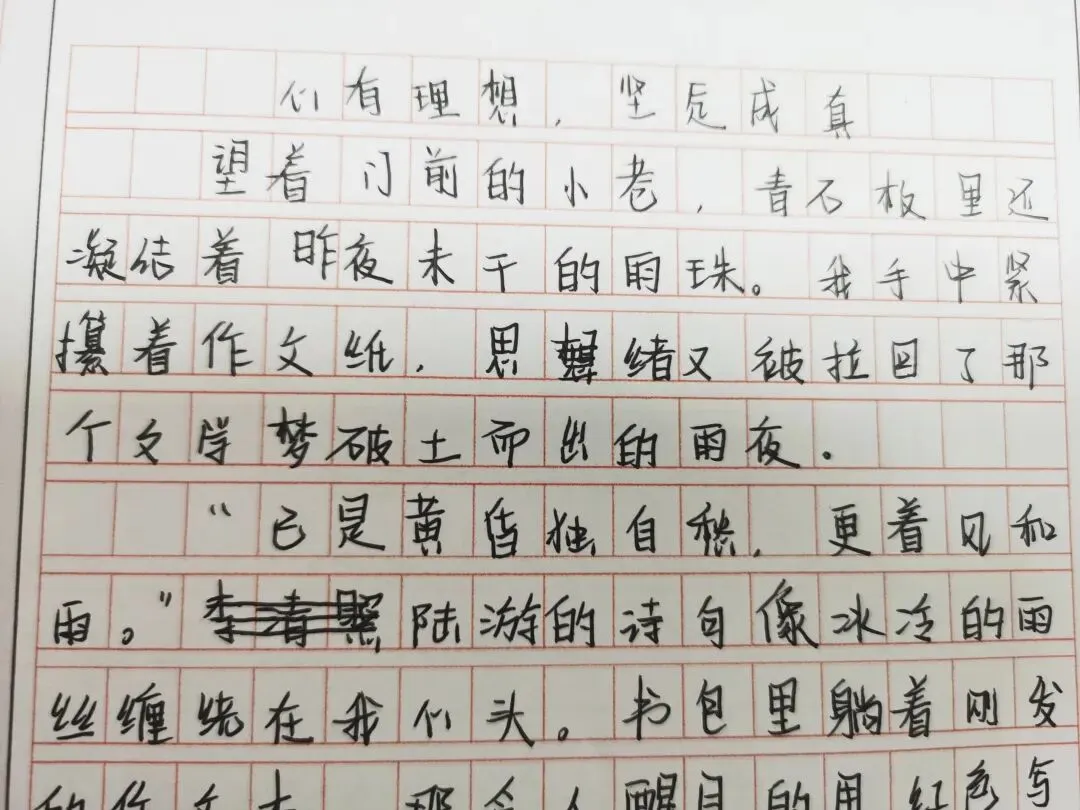 心有理想，坚定成真
望着门前的小巷，青石板里还
凝结着昨夜未干的雨珠。我手中紧
攥着作文纸，思绪又被拉回了那
个文学梦破土而出的雨夜。
“已是黄昏独自愁，更着风和
雨。”李清照陆游的诗句像冰冷的雨
丝缠绕在我心头。书包里躺着刚发
的作文本，那令人醒目的用红色写